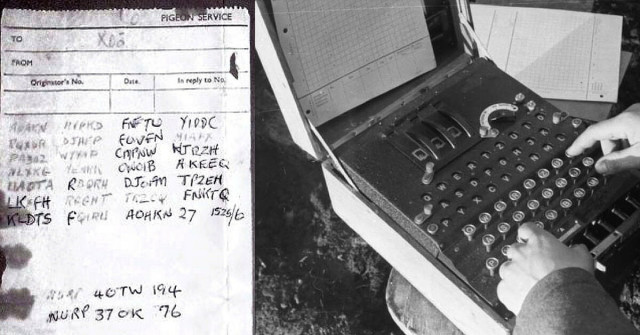 PIGEON SERVICE
TO X02
FROM
Originator's No. Date. In reply to No.
AOAKN HVPKD FNFJW YIDDC
RQXSR DJHFP GOVFN MIAPX
PABUZ WYYNP CMPNW HJRZH
NLXKG MEMKK ONOIB AKEEQ
UAOTA RBQRH DJOFM TPZEH
LKXGH RGGHT JRZCQ FNKTQ
KLDTS FQIRW AOAKN 27 1525/6
NURP 40TW 194
NURP 37OK 76